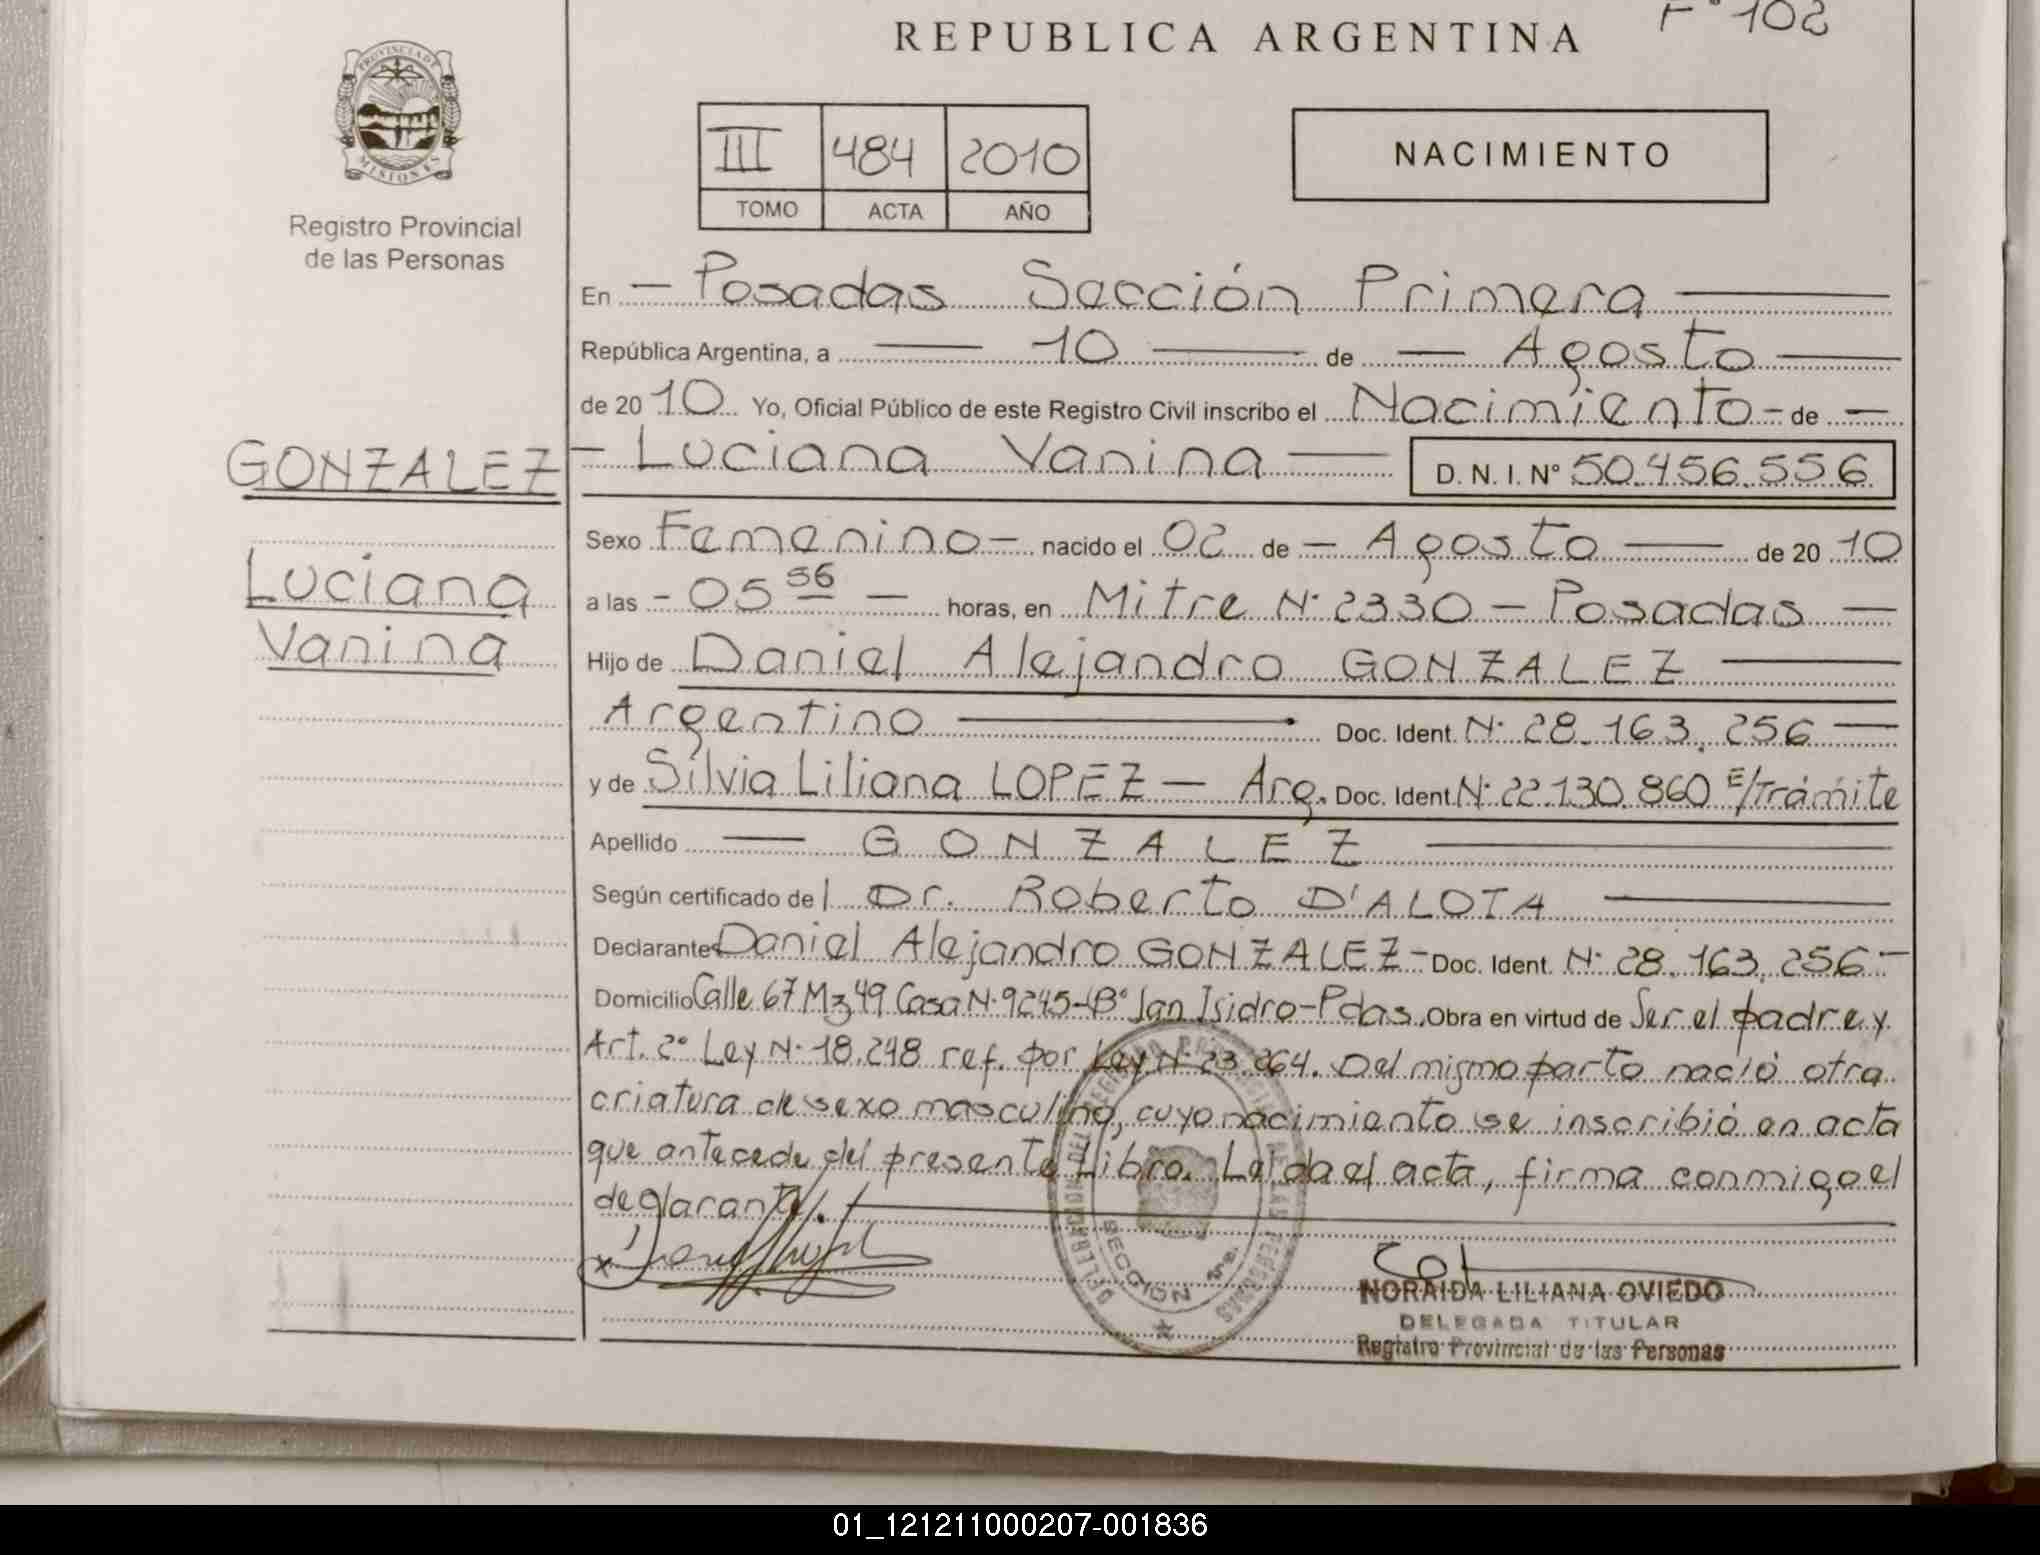 REPUBLICA ARGENTINA
F° 102
PROVINCIA DE
MISIONES
Registro Provincial
de las Personas
III 484 2010
TOMO ACTA AÑO
NACIMIENTO
En – Posadas Sección Primera —
República Argentina, a — 10 — de — Agosto —
de 20 10 Yo, Oficial Público de este Registro Civil inscribo el Nacimiento – de –
GONZALEZ
– Luciana Vanina — D. N. I. N° 50.456.556
Sexo Femenino – nacido el 02 de – Agosto — de 20 10
Luciana
Vanina
a las – 05 56 – horas, en Mitre N° 2330 – Posadas –
Hijo de Daniel Alejandro GONZALEZ —
Argentino — Doc. Ident. N° 28.163.256 –
y de Silvia Liliana LOPEZ – Arg. Doc. Ident. N° 22.130.860 E/Trámite
Apellido — GONZALEZ —
Según certificado de l Dr. Roberto D'ALOTA —
Declarante Daniel Alejandro GONZALEZ – Doc. Ident. N° 28.163.256 –
Domicilio Calle 67 Mz 49 Casa N° 9245 – B° San Isidro – Pdas. Obra en virtud de Ser el padre y
Art. 2° Ley N° 18.248 ref. por Ley N° 23.264. Del mismo parto nació otra
criatura de sexo masculino, cuyo nacimiento se inscribió en acta
que antecede del presente Libro. Leída el acta, firma conmigo el
declarante. —
SECCION 1ra.
NORAIDA LILIANA OVIEDO
DELEGADA TITULAR
Registro Provincial de las Personas
01_121211000207-001836